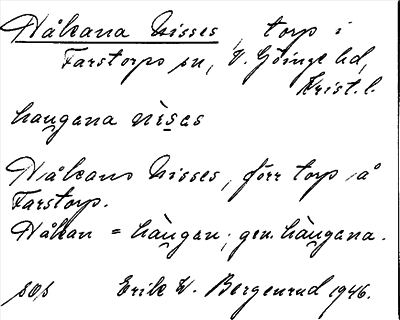 Håkana Nisses, torp i
Farstorps sn, V. Göinge hd,
Krist. l.
hau̯gana nìsas
Håkans Nisses, förr torp på
Farstorp.
Håkan = hàu̯gan; gen. hàu̯gana.
Erik W. Bergenrud 1946.